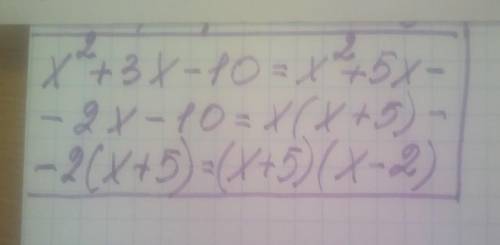 x²+3x-10=x²+5x-
-2x-10=x(x+5)-
-2(x+5)=(x+5)(x-2)